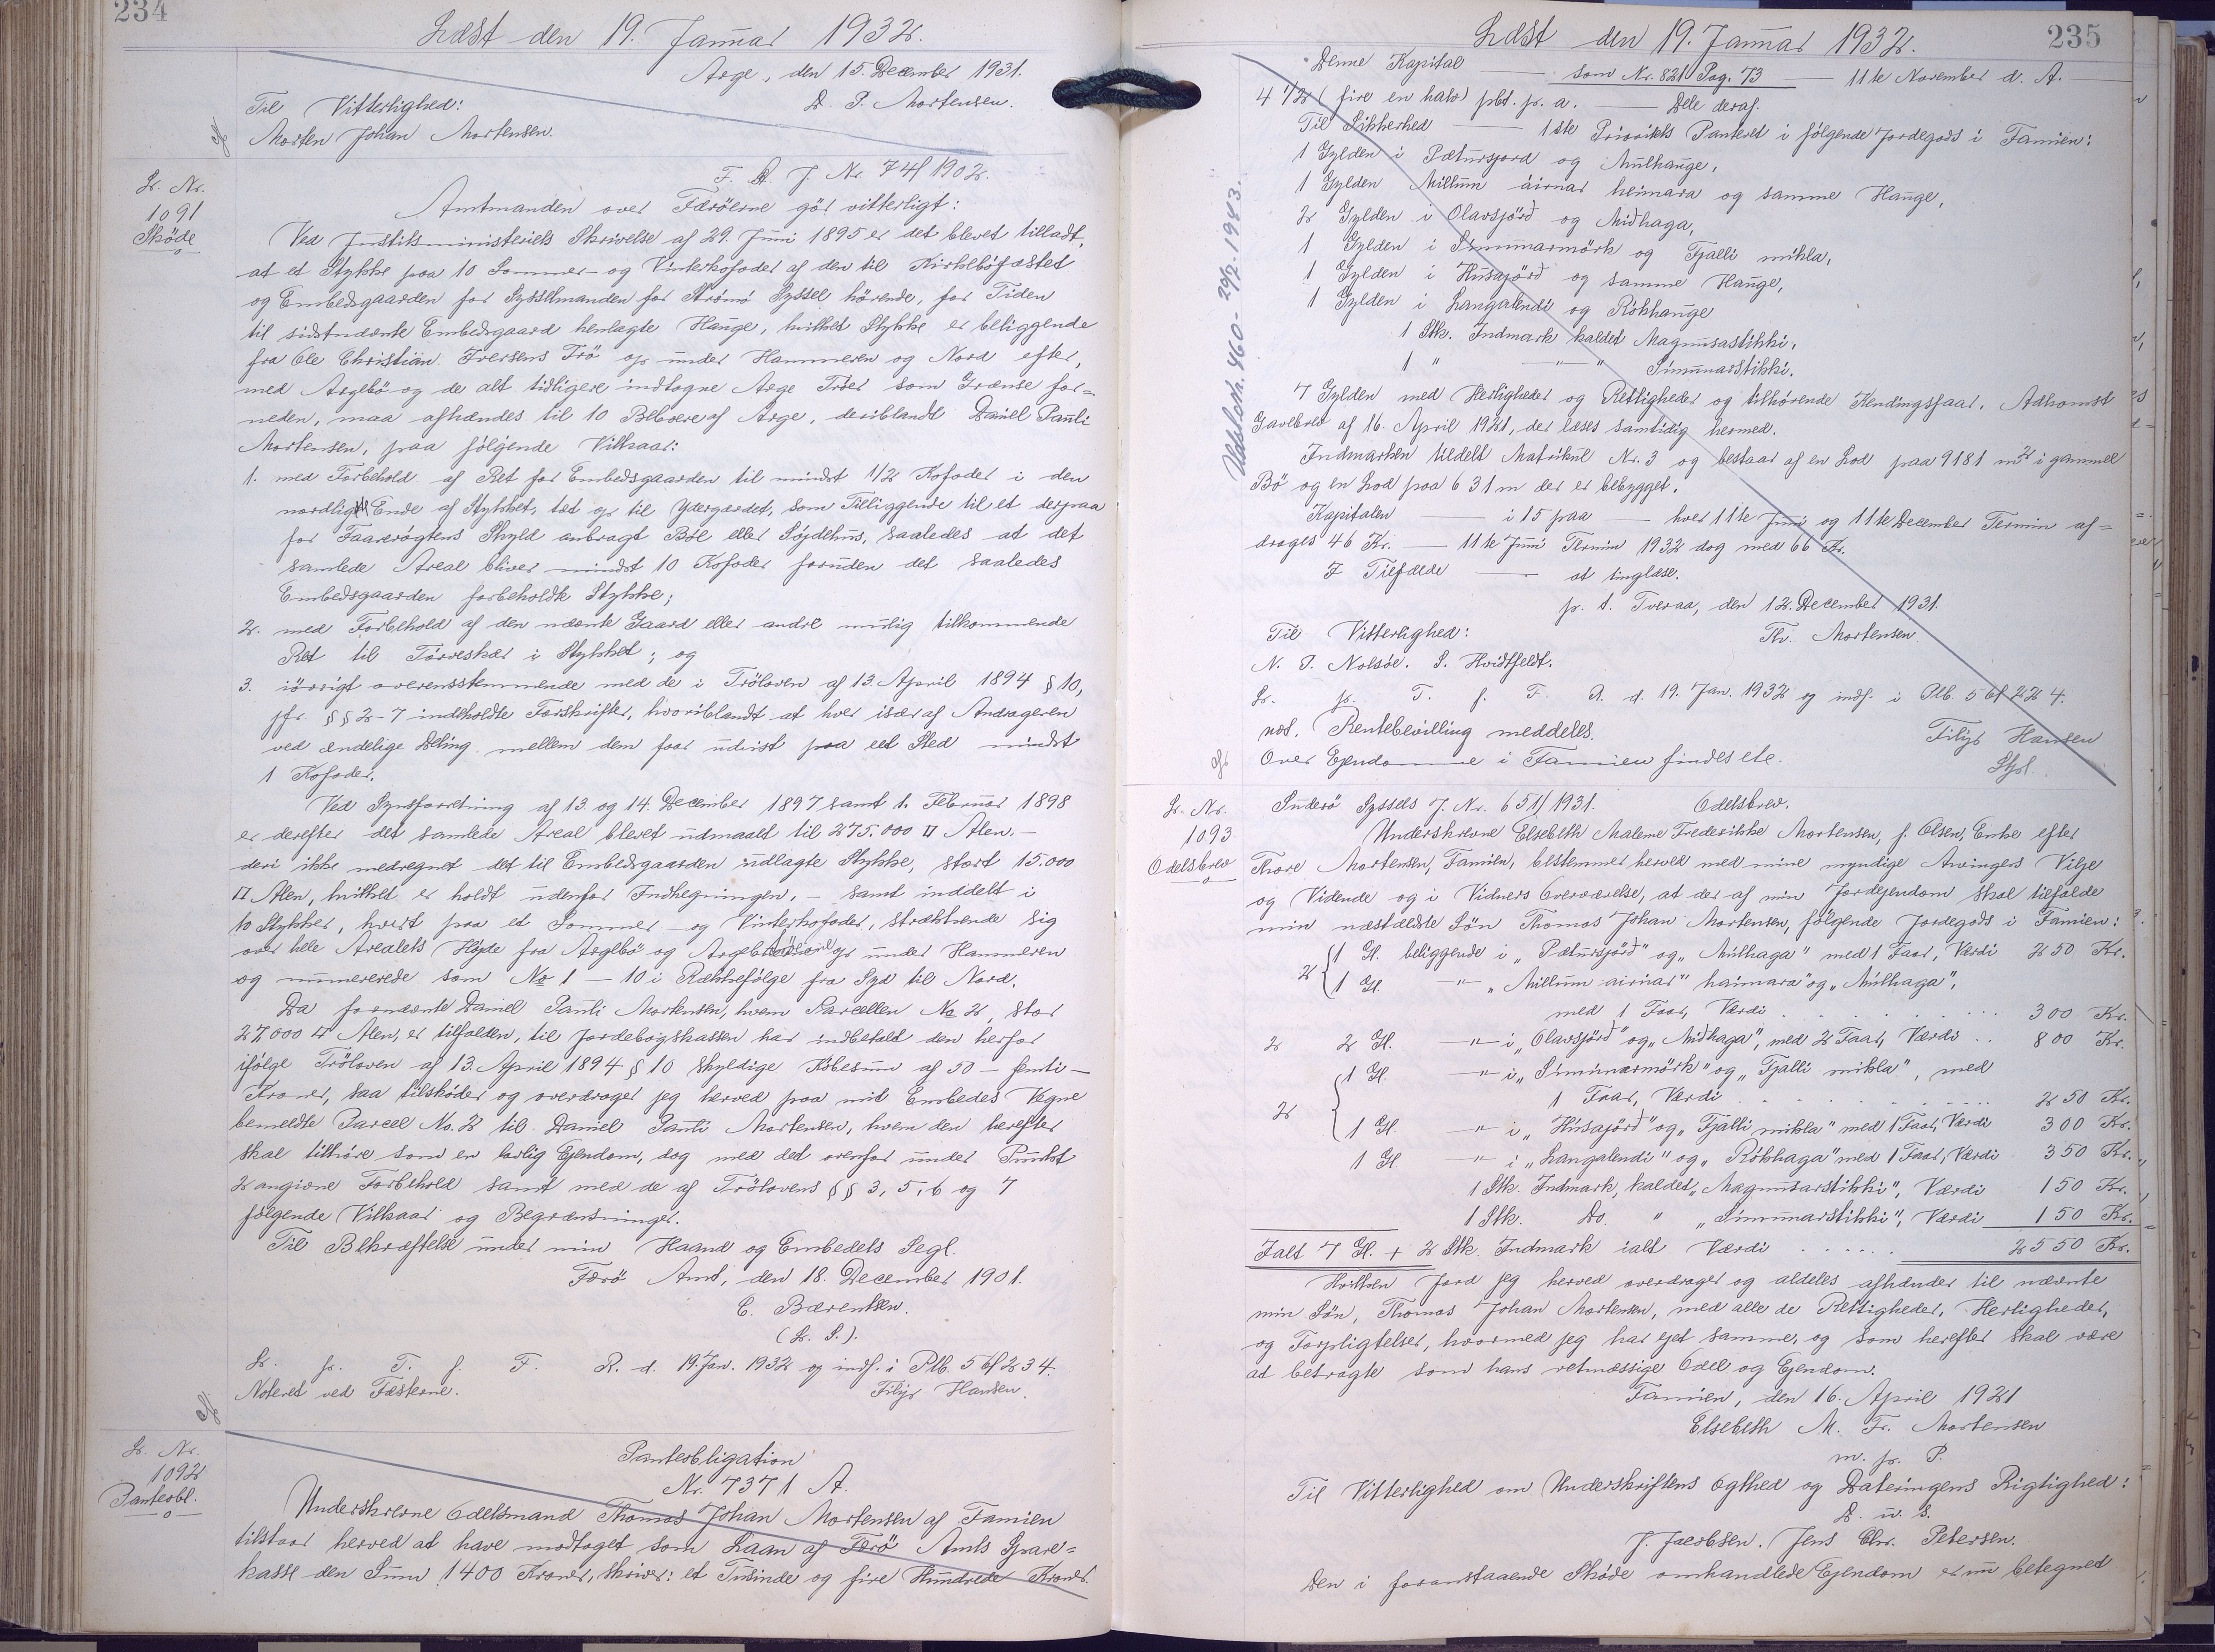 234
Læst den 19. Januar 1932.
Arge, den 15. December 1931.
D. P. Mortensen.
Til Vitterlighed:
Morten Johan Mortensen.
F. A. J. Nr. 74/1902.
L. Nr.
1091
Skøde
Amtmanden over Færöerne gör vitterligt:
Ved Justitsministeriets Skrivelse af 29. Juni 1895 er det blevet tilladt,
at et Stykke paa 10 Sommer- og Vinterkofoder af den til Kirkeböfæstet
og Embedsgaarden for Sysselmanden for Strömö Syssel hörende, for Tiden
til sidstnævnte Embedsgaard henlagte Hauge, hvilket Stykke er beliggende
fra Ole Christian Iversens Trö op under Hammeren og Nord efter,
med Argebö og de alt tidligere indtagne Arge Tröer som Grænse for-
neden, maa afhændes til 10 Beboere af Arge, deriblandt Daniel Pauli
Mortensen, paa fölgende Vilkaar:
1. med Forbehold af Ret for Embedsgaarden til mindst 1/2 Kofoder i den
nordligste Ende af Stykket, tæt op til Ydergærdet, som Tilliggende til et derpaa
for Faarerøgtens Skyld anbragt Böl eller Söjdehus, saaledes at det
samlede Areal bliver mindst 10 Kofoder foruden det saaledes
Embedsgaarden forbeholdte Stykke;
2. med Forbehold af den nævnte Gaard eller andre mulig tilkommende
Ret til Törveskær i Stykket; og
3. iövrigt overensstemmende med de i Tröloven af 13. April 1894 § 10,
jfr. §§ 2-7 indeholdte Forskrifter, hvoriblandt at hver især af Andragerne
ved endelige Deling mellem dem faar udvist paa eet Sted mindst
1 Kofoder.
Ved Synsforretning af 13. og 14. December 1897 samt 1. Februar 1898
er derefter det samlede Areal blevet udmaalt til 275.000 □ Alen. -
deri ikke medregnet det til Embedsgaarden udlagte Stykke, stort 15.000
□ Alen, hvilket er holdt udenfor Indhegningen, - samt inddelt i
10 Stykker, hvert paa et Sommer- og Vinterkofoder, strækkende sig
over hele Arealets Höjde fra Argebö og Argetröerne op under Hammeren
og nummererede som No 1 - 10 i Rækkefölge fra Syd til Nord.
Da fornævnte Daniel Pauli Mortensen, hvem Parcellen No 2, stor
27,000 □ Alen, er tilfalden, til Jordebogskassen har indbetalt den herfor
ifölge Tröloven af 13. April 1894 § 10 skyldige Köbesum af 50 - femti -
Kroner, saa tilsköder og overdrager jeg herved paa mit Embedes Vegne
bemeldte Parcel No. 2 til Daniel Pauli Mortensen, hvem den herefter
skal tilhöre som en lovlig Ejendom, dog med det ovenfor under Punkt
2 angivne Forbehold samt med de af Trölovens §§ 3, 5, 6 og 7
fölgende Vilkaar og Begrænsninger.
Til Bekræftelse under min Haand og Embedets Segl.
Færö Amt, den 18. December 1901.
C. Bærentsen.
(L. S.).
L. p. T. f. F. R. d. 19. Jan. 1932 og indf. i Plb. 56f 234.
Noteret ved Fæsterne. Filip Hansen.
L. Nr.
1092
Panteobl.
Panteobligation
Nr. 7371 A.
Underskrevne Odelsmand Thomas Johan Mortensen af Famien
tilstaar herved at have modtaget som Laan af Færö Amts Spare-
kasse den Sum 1400 Kroner, skriver: et Tusinde og fire Hundrede Kroner.
235
Læst den 19. Januar 1932.
Denne Kapital — som Nr. 821 Pag. 73 — 11te November d. A. —
4 1/2 (fire en halv) pCt. p. a. — Dele deraf.
Til Sikkerhed — 1ste Prioritets Panteret i fölgende Jordegods i Famien:
1 Gylden i Pætursjord og Mulhauge,
1 Gylden Millum áirnar heimara og samme Hauge,
2 Gylden i Olavsjörd og Midhaga,
1 Gylden i Simunarmörk og Fjalli mikla,
1 Gylden i Húsajörd og samme Hauge,
1 Gylden i Langalendi og Rökhauge
1 Stk. Indmark kaldet Magnusastikki,
1 " " " Simunarstikki.
7 Gylden med Herligheder og Rettigheder og tilhörende Kendingsfaar. Adkomst
Gavebrev af 16. April 1921, der læses samtidig hermed.
Indmarken tildelt Matrikul Nr. 3 og bestaar af en Lod paa 9181 m2 i gammel
Bö og en Lod paa 631 m der er bebygget.
Kapitalen — i 15 paa — hver 11te Juni og 11te December Termin af-
drages 46 Kr. — 11te Juni Termin 1932 dog med 66 Kr.
I Tilfælde — at tinglæse.
p. t. Tveraa, den 12. December 1931.
Til Vitterlighed: Th. Mortensen.
N. P. Nolsöe. S. Hvidtfeldt.
L. p. T. f. F. R. d. 19. Jan. 1932 og indf. i Plb. 56f 224.
not. Rentebevilling meddeles. Filip Hansen
Over Ejendomme i Famien findes etc. Stpl.
Udslettet. 460 - 20/2. 1943.
L. Nr.
1093
Odelsbrev
Suderö Syssels J. Nr. 651/1931. Odelsbrev.
Underskrevne Elsebeth Malene Frederikke Mortensen, f. Olsen, Enke efter
Thore Mortensen, Famien, bestemmer herved med mine myndige Arvingers Vilje
og Vidende og i Vidners Overværelse, at der af min Jordejendom skal tilfalde
min næstældste Sön Thomas Johan Mortensen, fölgende Jordegods i Famien:
2 { 1 Gl. beliggende i "Pætursjörd" og "Múlhaga" med 1 Faar, Værdi 250 Kr.
1 Gl. — " — "Millum airnar" haimara" og "Múlhaga",
med 1 Faar, Værdi . . . . 300 Kr.
2 2 Gl. — " — i "Olavsjörd" og "Midhaga", med 2 Faar, Værdi . . 800 Kr.
2 { 1 Gl. — " — i "Simunarmörk" og "Fjalli mikla", med
1 Faar, Værdi . . . . 250 Kr.
1 Gl. — " — i "Húsajörd" og "Fjalli mikla" med 1 Faar, Værdi 300 Kr.
1 Gl. — " — i "Langalendi" og "Rökhaga" med 1 Faar, Værdi 350 Kr.
1 Stk. Indmark, kaldet "Magnusarstikki", Værdi 150 Kr.
1 Stk. Do. " "Simunarstikki", Værdi 150 Kr.
Ialt 7 Gl. + 2 Stk. Indmark ialt Værdi . . . . . 2550 Kr.
Hvilken Jord jeg herved overdrager og aldeles afhænder til nævnte
min Sön, Thomas Johan Mortensen, med alle de Rettigheder, Herligheder,
og Forpligtelser, hvormed jeg har ejet samme, og som herefter skal være
at betragte som hans retmæssige Odel og Ejendom.
Famien, den 16. April 1921
Elsebeth M. Fr. Mortensen
m. p. P.
Til Vitterlighed om Underskriftens Ægthed og Dateringens Rigtighed:
D. u. S.
J. Jacobsen. Jens Chr. Petersen.
Den i foranstaaende Skøde omhandlede Ejendom er nu betegnet